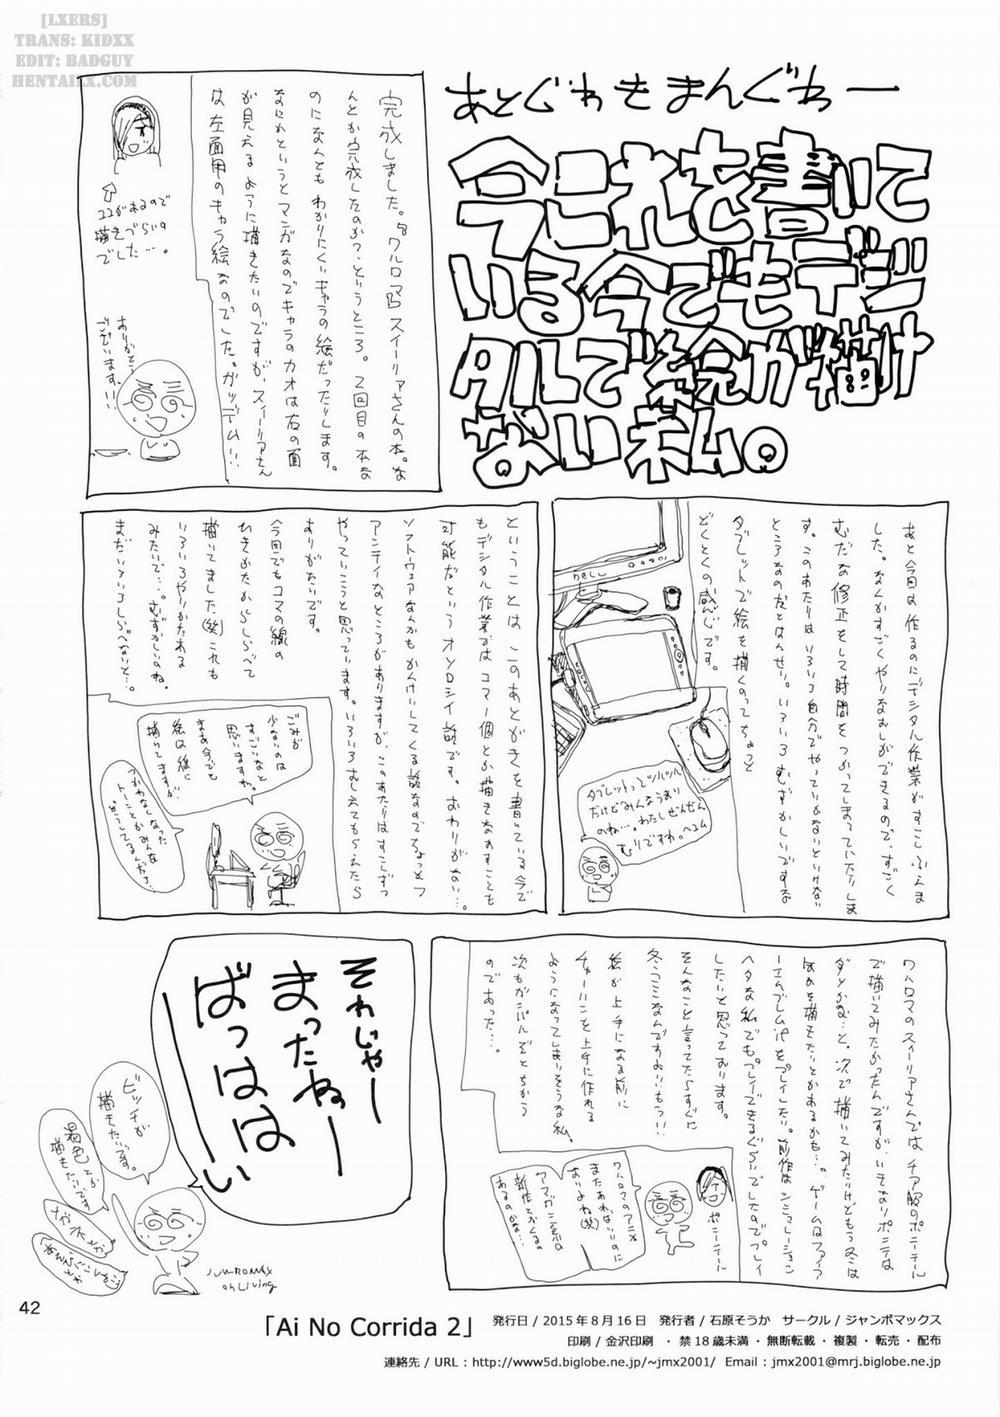 [LXERS]
TRANS: KIDXX
EDIT: BADGUY
HENTAIXX.COM
あとぐわきまんぐわー
今これを書いて
いる今でもデジ
タルで絵が描け
ない私。
完成しました。『ワルロマ』スィーリアさんの本。な
んとか完成したのか？というところ。2回目の本な
のになんともわかりにくいキャラの絵だったりします。
なにかというとマンガなのでキャラのカオは右の面
が見えるように描きたいのですが、スィーリアさん
は左面用のキャラ絵なのでした。ガッデム!!
ココがあるので
描きづらいの
でした…。
ありがとう
ございます!!
あと今回は作るのにデジタル作業がすこしふえま
した。なんかすごくやりなおしができるので、すごく
むだな修正をして時間をつかってしまっていたりしま
す。このあたりはいろいろ自分でやっていかないといけない
ところなのかとはんせい。いろいろむずかしいですな
タブレットで絵を描くのってちょっと
どくとくの感じです。
DELL
タブレットってツルツル
だけどみんなうまい
のね…。わたしぜんぜん
むりですわ。
ということは、このあとがきを書いている今で
もデジタル作業ではコマ一個とか描きなおすことも
可能だというオソロシイ話です。おわりがない…。
ソフトウェアなんかもかんけいしてくる話なのでちょっとフ
アンティなところがありますが、このあたりはすこしずつ
やっていこうと思っています。いろいろおしえてもらえたら
ありがたいです。
今回でもコマの線の
ひきかたからしらべて
描いてました(笑)これも
いろいろやりかたある
みたいで…。むずかしいね。
まだいろいろしらべないと…。
ごみが
少ないのは
すごいなと
思いますわ。
まあ今でも
絵は紙に
描いてますが
つかわなくなった
トーンとかみんな
どうしてるんだろ…
ワルロマのスィーリアさんではチア服のポニーテール
で描いてみたかったんですが、いきなりポニテは
ダメかな…と。次で描いてみたいけどもう冬は
ちがう本を描きたいとかあるかも…。ゲームはファイア
ーエムブレムifをプレイしたい。前作はシミュレーション
ヘタな私でもプレイできるぐらいでしたのでプレイ
したいと思っております。
そんなこと言ってたらすぐに
冬コミなんですよ!!もうっ!!
絵が上手になる前に
チャーハンを上手に作れる
ようになってしまいそうな私。
次もガンバルぞとちかう
のであった…。
ポニーテール
ワルロマのアニメ
またあれないのに
おわるね(笑)
アマガミ系の
新作とかくるの
あるのかな…
それじゃー
まったねー
ばっははーい
ビッチが
描きたいです。
褐色とか
描きたいです
メガネとか
JUMBOMAX
oh Living
42
「Ai No Corrida 2」
発行日 / 2015年8月16日　発行者 / 石原そうか　サークル / ジャンボマックス
印刷 / 金沢印刷　・禁18歳未満・無断転載・複製・転売・配布
連絡先 / URL : http://www5d.biglobe.ne.jp/~jmx2001/ Email : jmx2001@mrj.biglobe.ne.jp